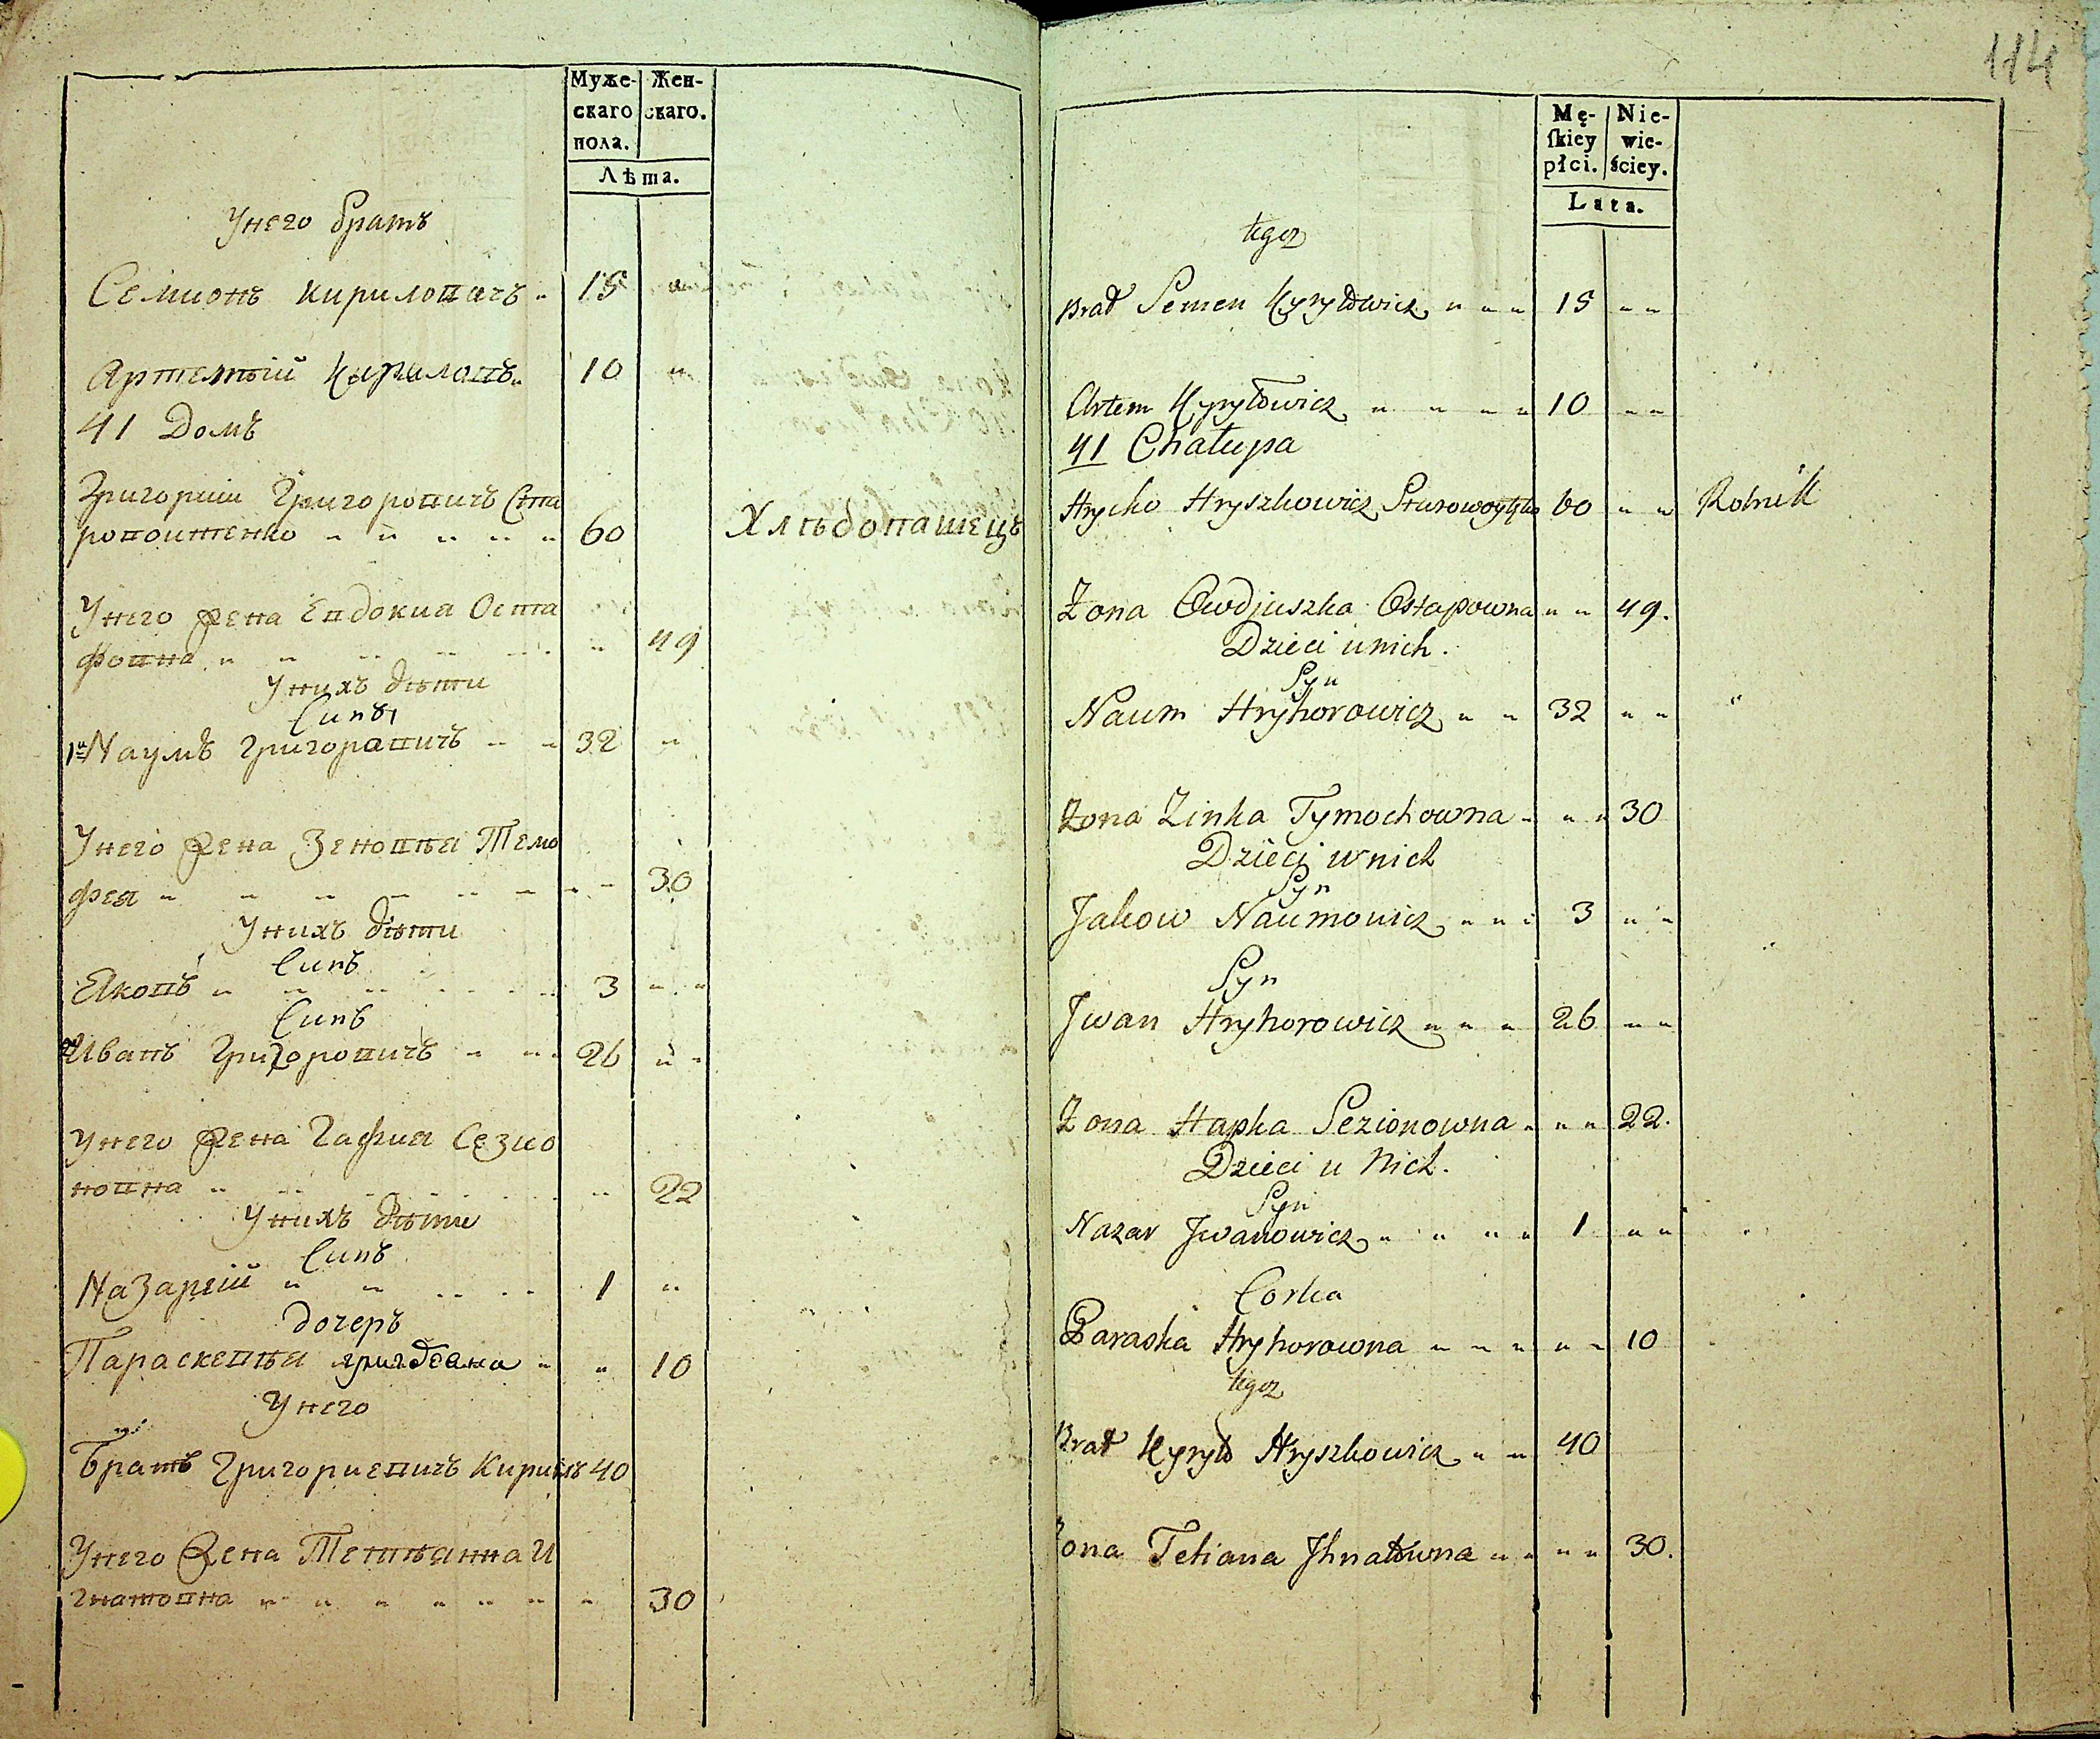 Муже-
скаго
пола.
Жен-
скаго.
Лѣта.
Унего братъ
Семионъ Кириловичъ 15
Артемий Кириловъ 10
41 Домъ
Григории Григоровичъ Ста
ровоитенко 60 Хлѣбопашецъ
Унего жена Евдокиа Оста
фовна 49
Унихъ дѣти
Синъ
1й Наумъ Григоровичъ 32
Унего жена Зеновѣя Темо
фея 30
Унихъ дѣти
Синъ
Яковъ 3
Синъ
Иванъ Григоровичъ 26
Унего жена Гафия Сезио
новна 22
Унихъ дѣти
Синъ
Назарей 1
дочеръ
Параскевѣя 10
Унего
Братъ Григориевичъ Кирилъ 40
Унего жена Тетѣянна И
гнатовна 30
114
Mę-
skiey
płci.
Nie-
wie-
ściey.
Lata.
tegoz
Brat Semen Kyryłowicz 15
Artem Kyryłowicz 10
41 Chałupa
Hrycko Hryszkowicz Starowoytenko 60 Rolnik
Zona Owdiuszka Ostapowna 49.
Dzieci unich.
Syn
Naum Hryhorowicz 32
Zona Zinka Tymochowna 30
Dzieci unich
Syn
Jakow Naumowicz 3
Syn
Jwan Hryhorowicz 26
Zona Hapka Sezionowna 22.
Dzieci u Nich.
Syn
Nazar Jwanowicz 1
Corka
Paraska Hryhorowna 10
tegoz
Brat Kyryło Hryszkowicz 40
Zona Tetiana Jhnatowna 30.